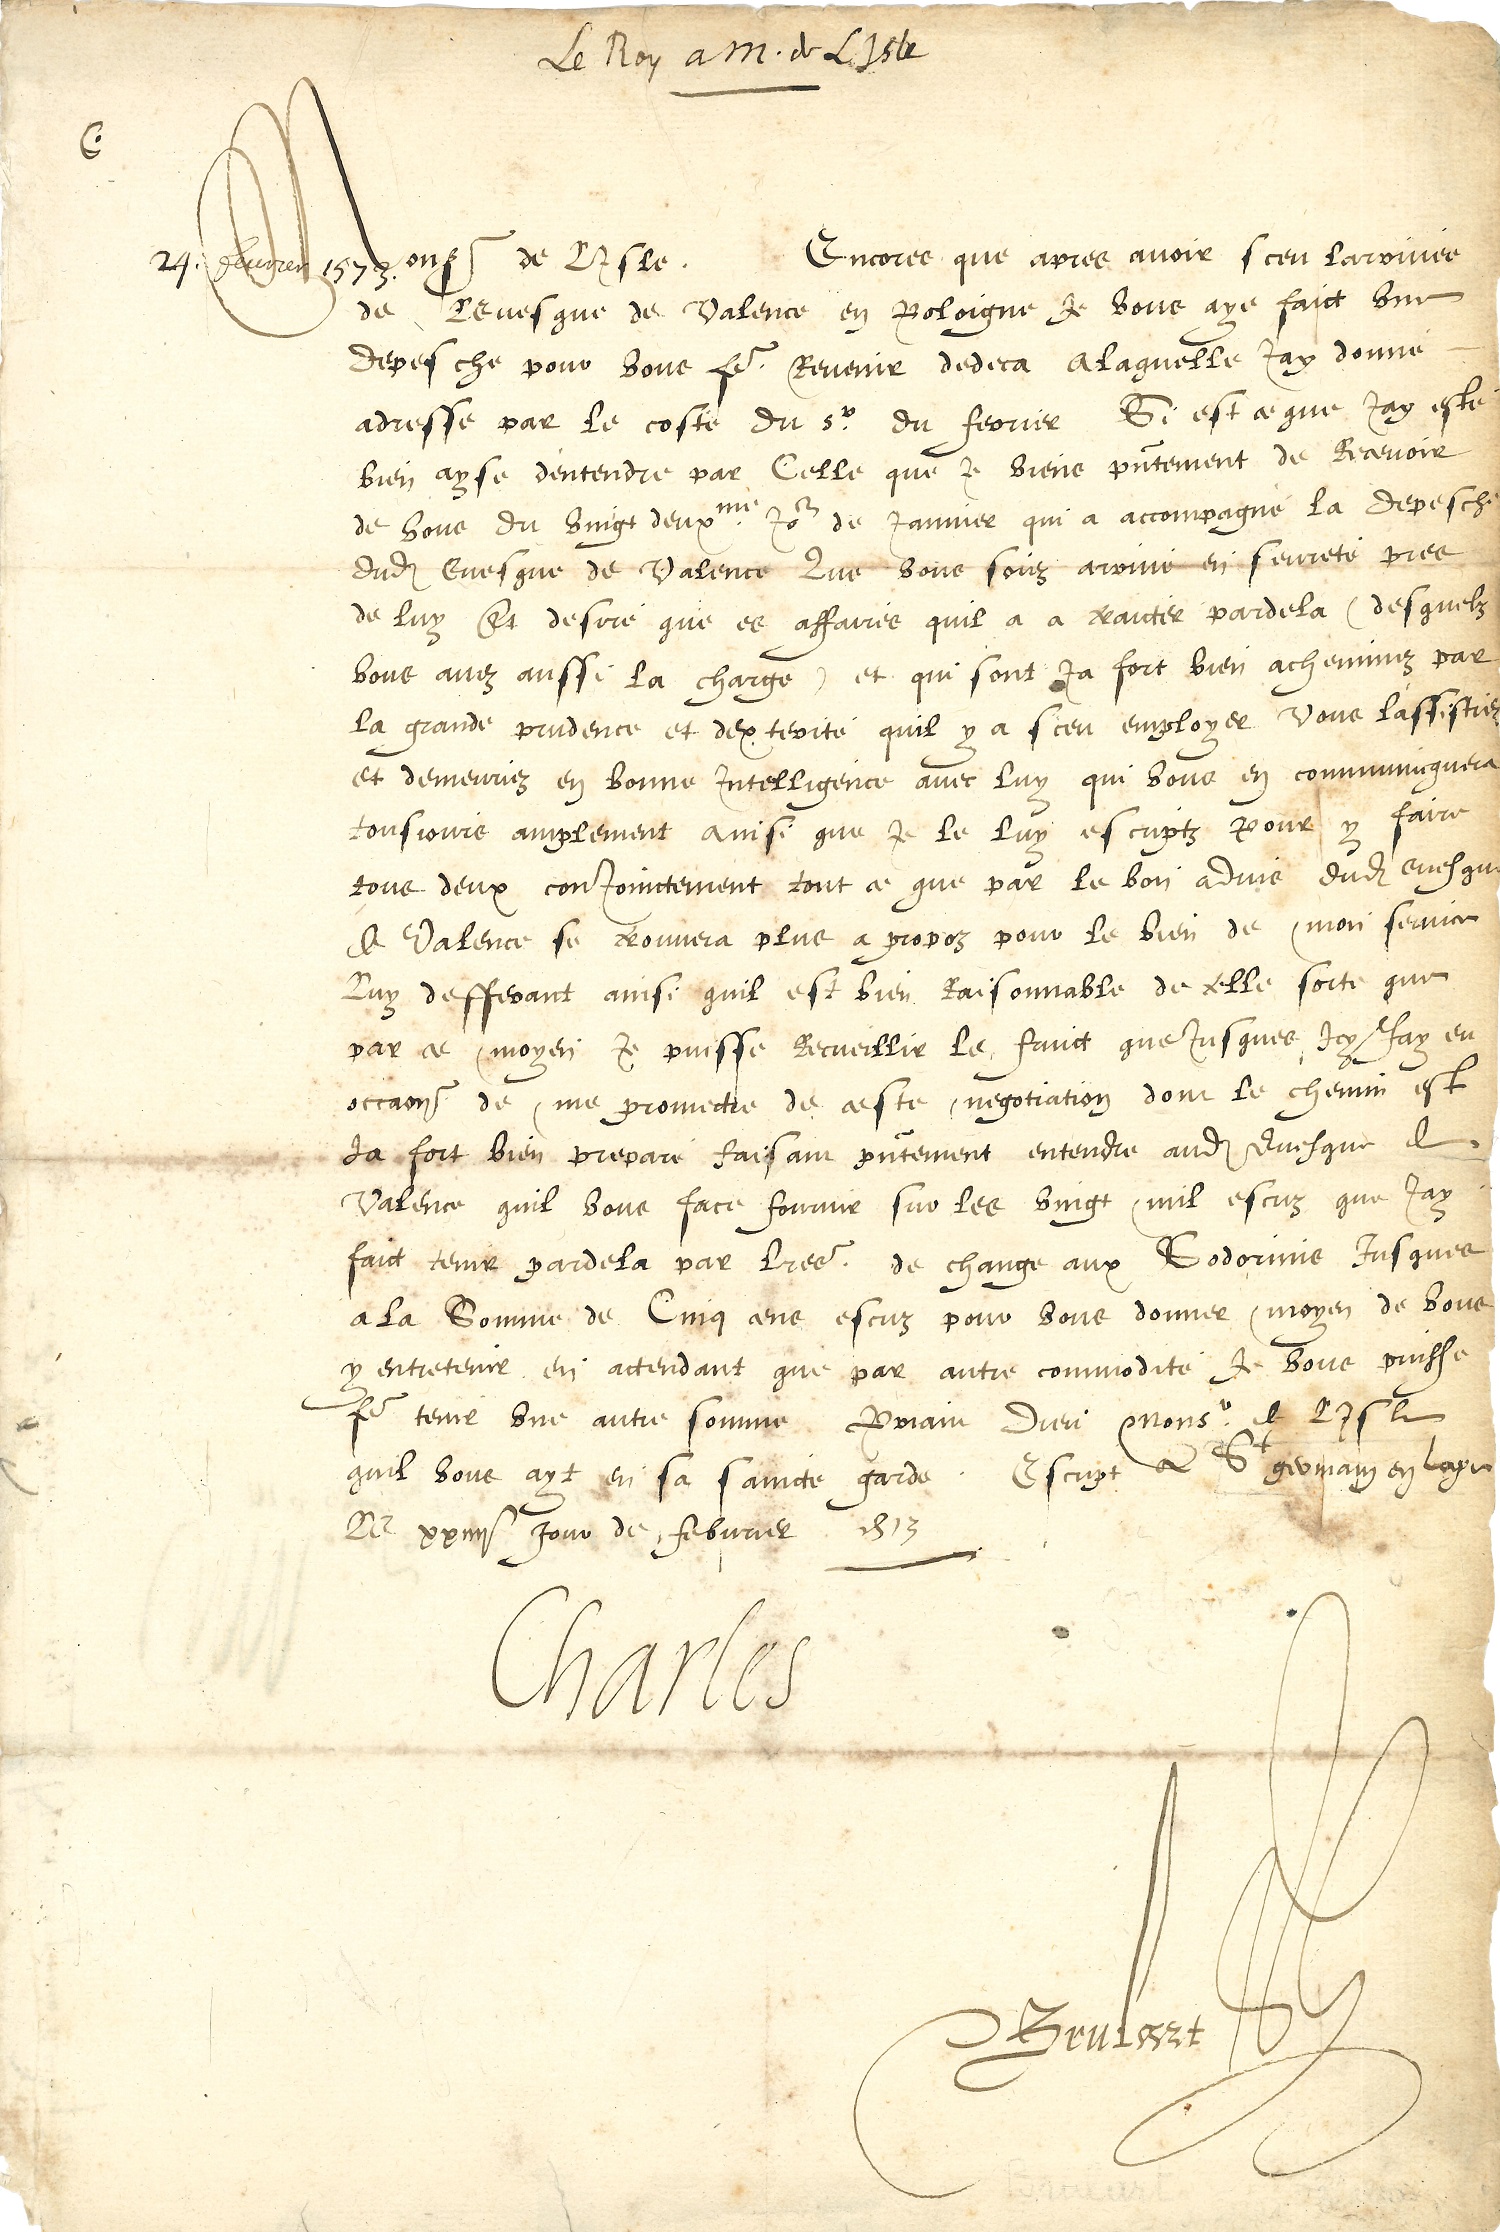 Le Roy a M. de L'Isle
C.
24. feburier 1573.
Monsr de L'Isle. Encores que apres avoir sceu larrivee
de Levesque de Valence en Poloigne Je vous aye faict une
depesche pour vous fe. Revenir dedeca A laquelle Jay donné
adresse par le costé du sr. du ferrier Si est ce que Jay esté
bien ayse dentendre par Celle que Je viens pntement de Recevoir
de vous du vingt deuxme. Jor de Janvier qui a accompagné la depesche
dud Evesque de Valence Que vous soiez arrivé en seureté pres
de luy Et desire que es affaires quil a a traicter pardela (desquelz
vous avez aussi la charge) et qui sont Ja fort bien acheminez par
la grande prudence et dexterité quil y a sceu employer Vous lassistiez
et demeuriez en bonne Intelligence avec luy qui vous en communicquera
tousiours amplement ainsi que Je le luy escriptz Pour y faire
tous deux conJoinctement tout ce que par le bon advis dud evesque
de Valence se trouvera plus a propoz pour le bien de mon service
Luy defferant ainsi quil est bien Raisonnable de telle sorte que
par ce moyen Je puisse Recueillir le fruict que Jusques Icy Jay eu
occaon de me promectre de ceste negotiation dont le chemin est
Ja fort bien preparé faisant pntement entendre aud Evesque de
Valence quil vous face fournir sur les vingt mil escuz que Jay
faict tenir pardela par lres. de change aux Sodorinis Jusques
a la Somme de Cinq cens escuz pour vous donner moyen de vous
y entretenir en actendant que par autre commodité Je vous puisse
fe tenir une autre somme Priant Dieu Monsr. de L'Isle
quil vous ayt en sa saincte garde. Escript a St germain en laye
Le xxiiij Jour de feburier 1573
Charles
Brulart